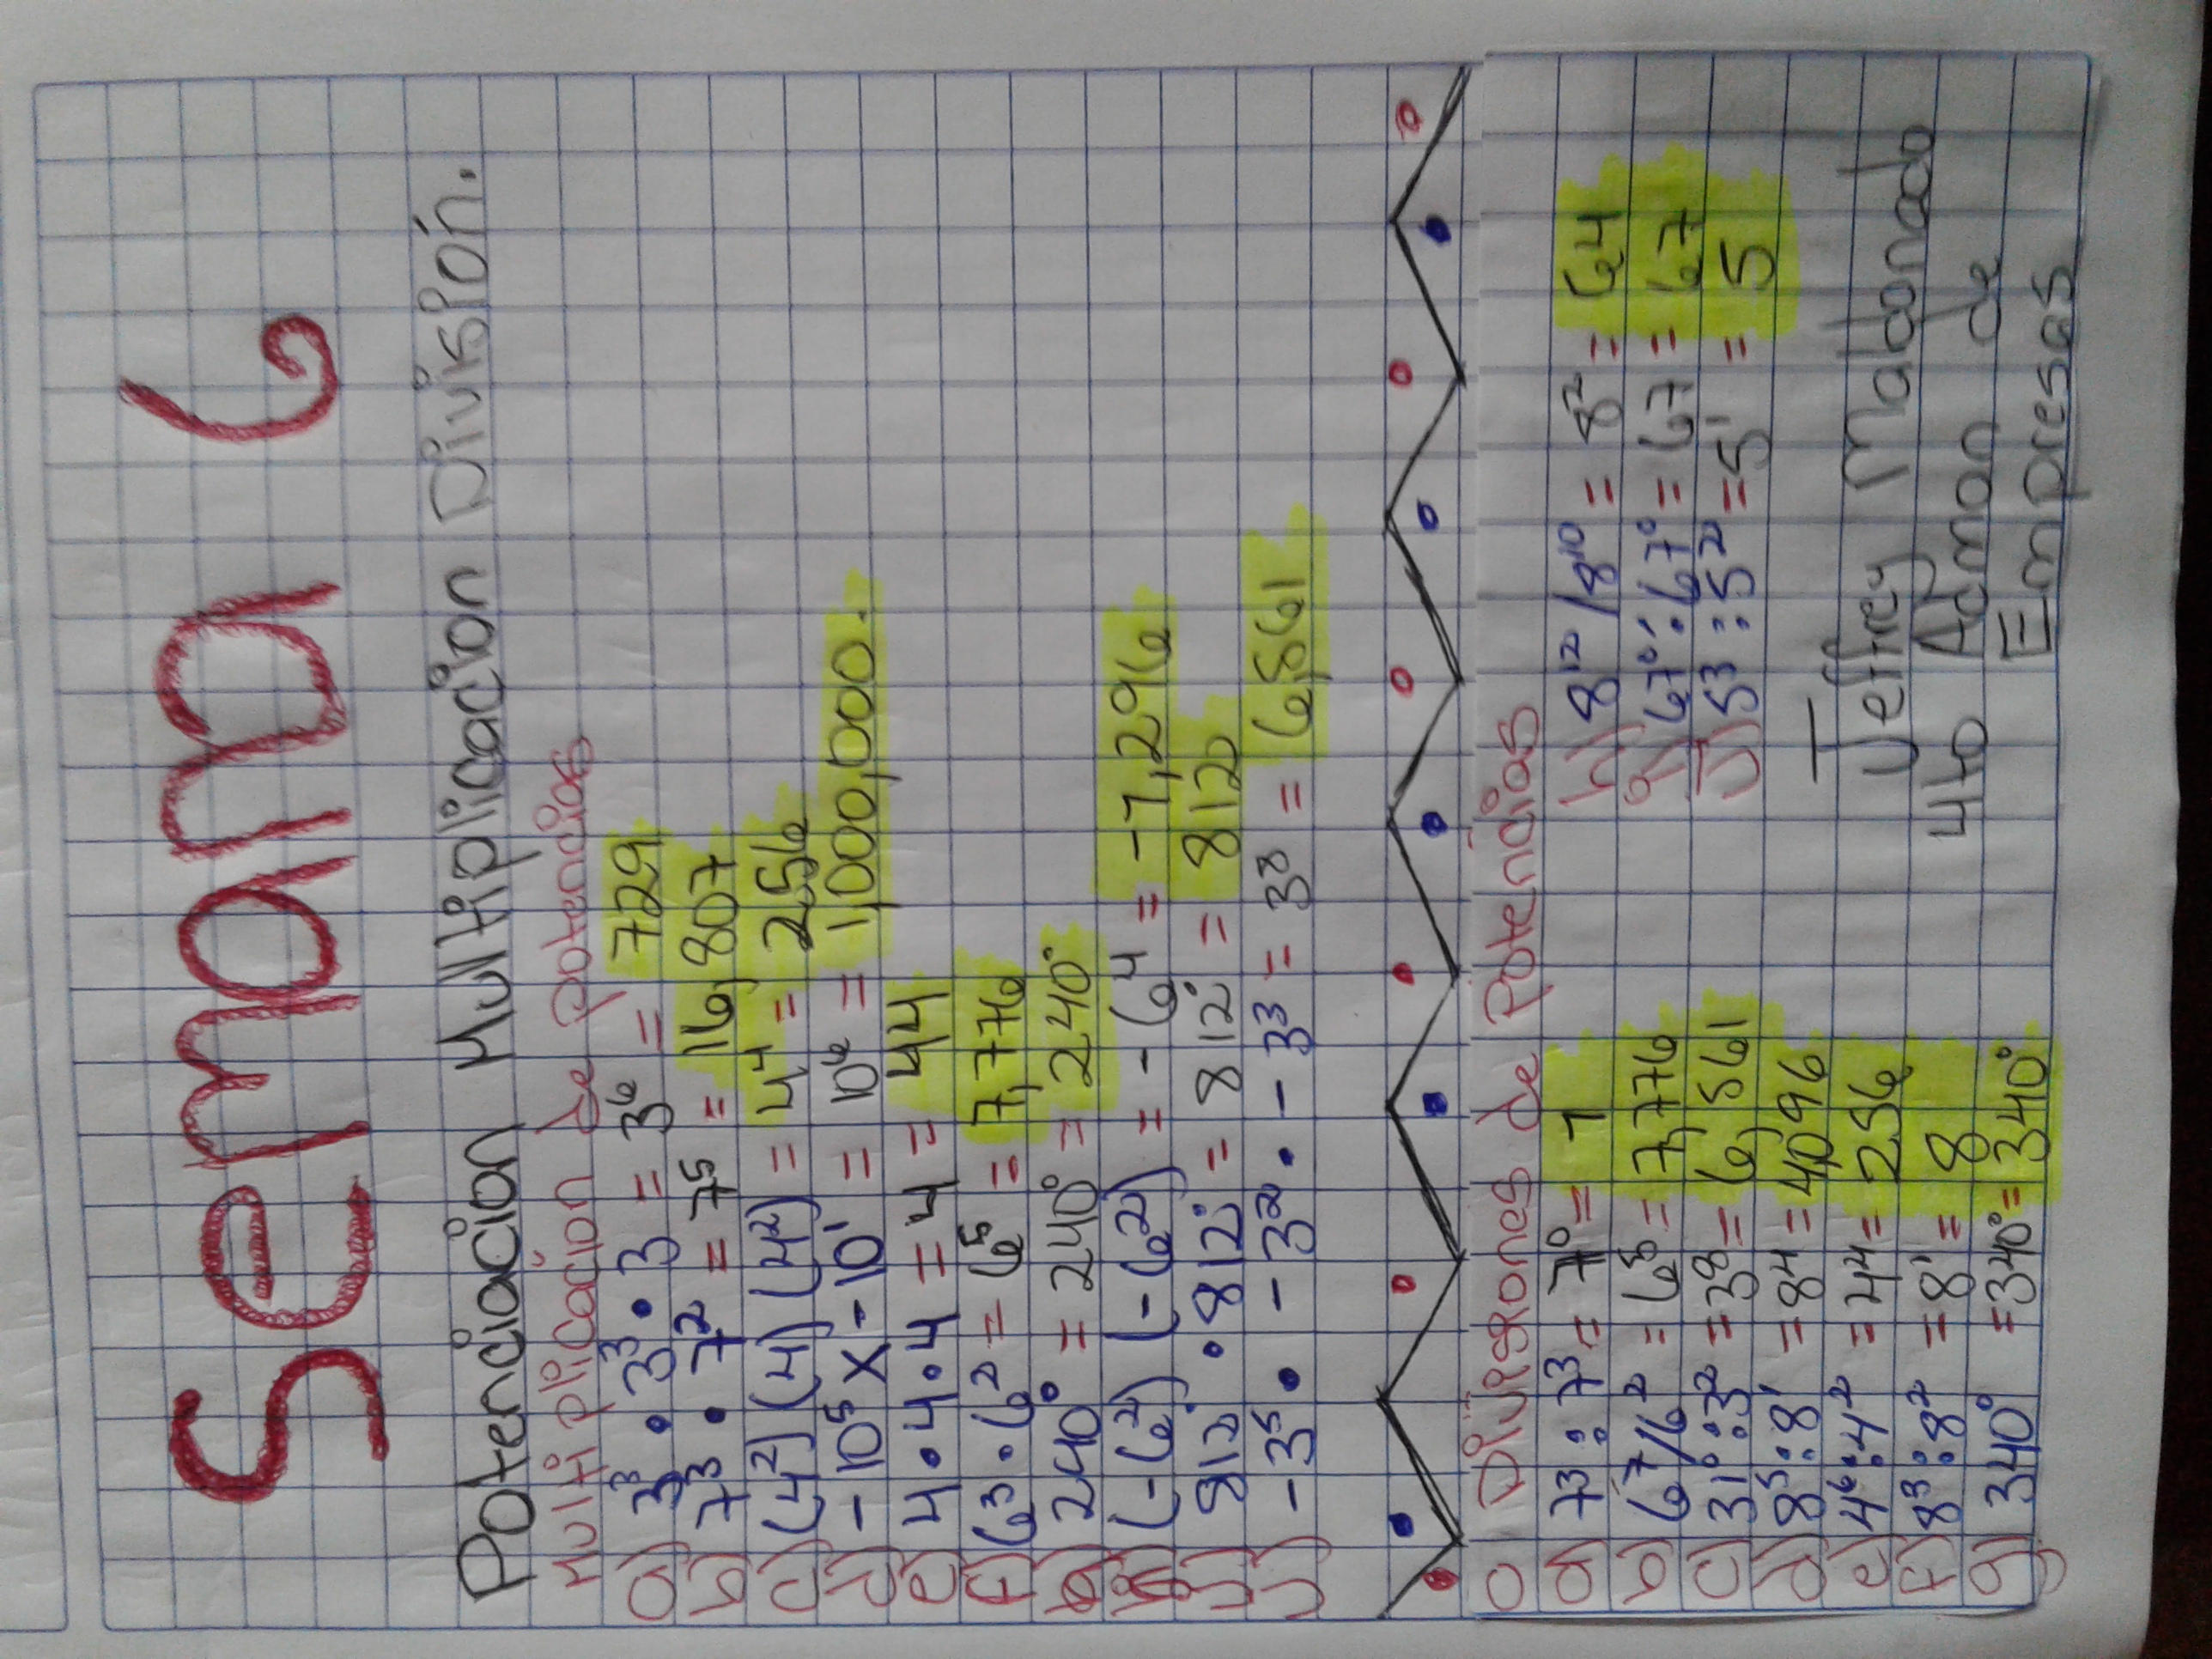 Semana 6
Potenciación Multiplicacion División.
Multiplicación de potencias
a) 3³ · 3³ · 3 = 3⁶ = 729
b) 7³ · 7² = 7⁵ = 16,807
c) (4²) (4) (4²) = 4⁴ = 256
d) -10⁵ x -10¹ = 10⁶ = 1,000,000.
e) 4·4·4 = 4 = 44
f) 6³ · 6² = 6⁵ = 7,776
240° = 240° = 240°
(-6²) (-6²) = -6⁴ = -1,296
812° · 812° = 812° = 812
-3⁵ · -3² · -3³ = 3⁸ = 6561
Divisiones de Potencias
a) 7³ : 7³ = 7⁰ = 1
b) 6⁷/6² = 6⁵ = 7,776
c) 3¹⁰ : 3² = 3⁸ = 6,561
d) 8⁵ : 8¹ = 8⁴ = 4096
e) 4⁶ : 4² = 4⁴ = 256
f) 8³ : 8² = 8¹ = 8
g) 340° = 340° = 340°
h) 8¹²/8¹⁰ = 8² = 64
67° : 67° = 67 = 67
J) 5³ : 5² = 5¹ = 5
Jeffrey Maldonado
4to Admon de
Empresas